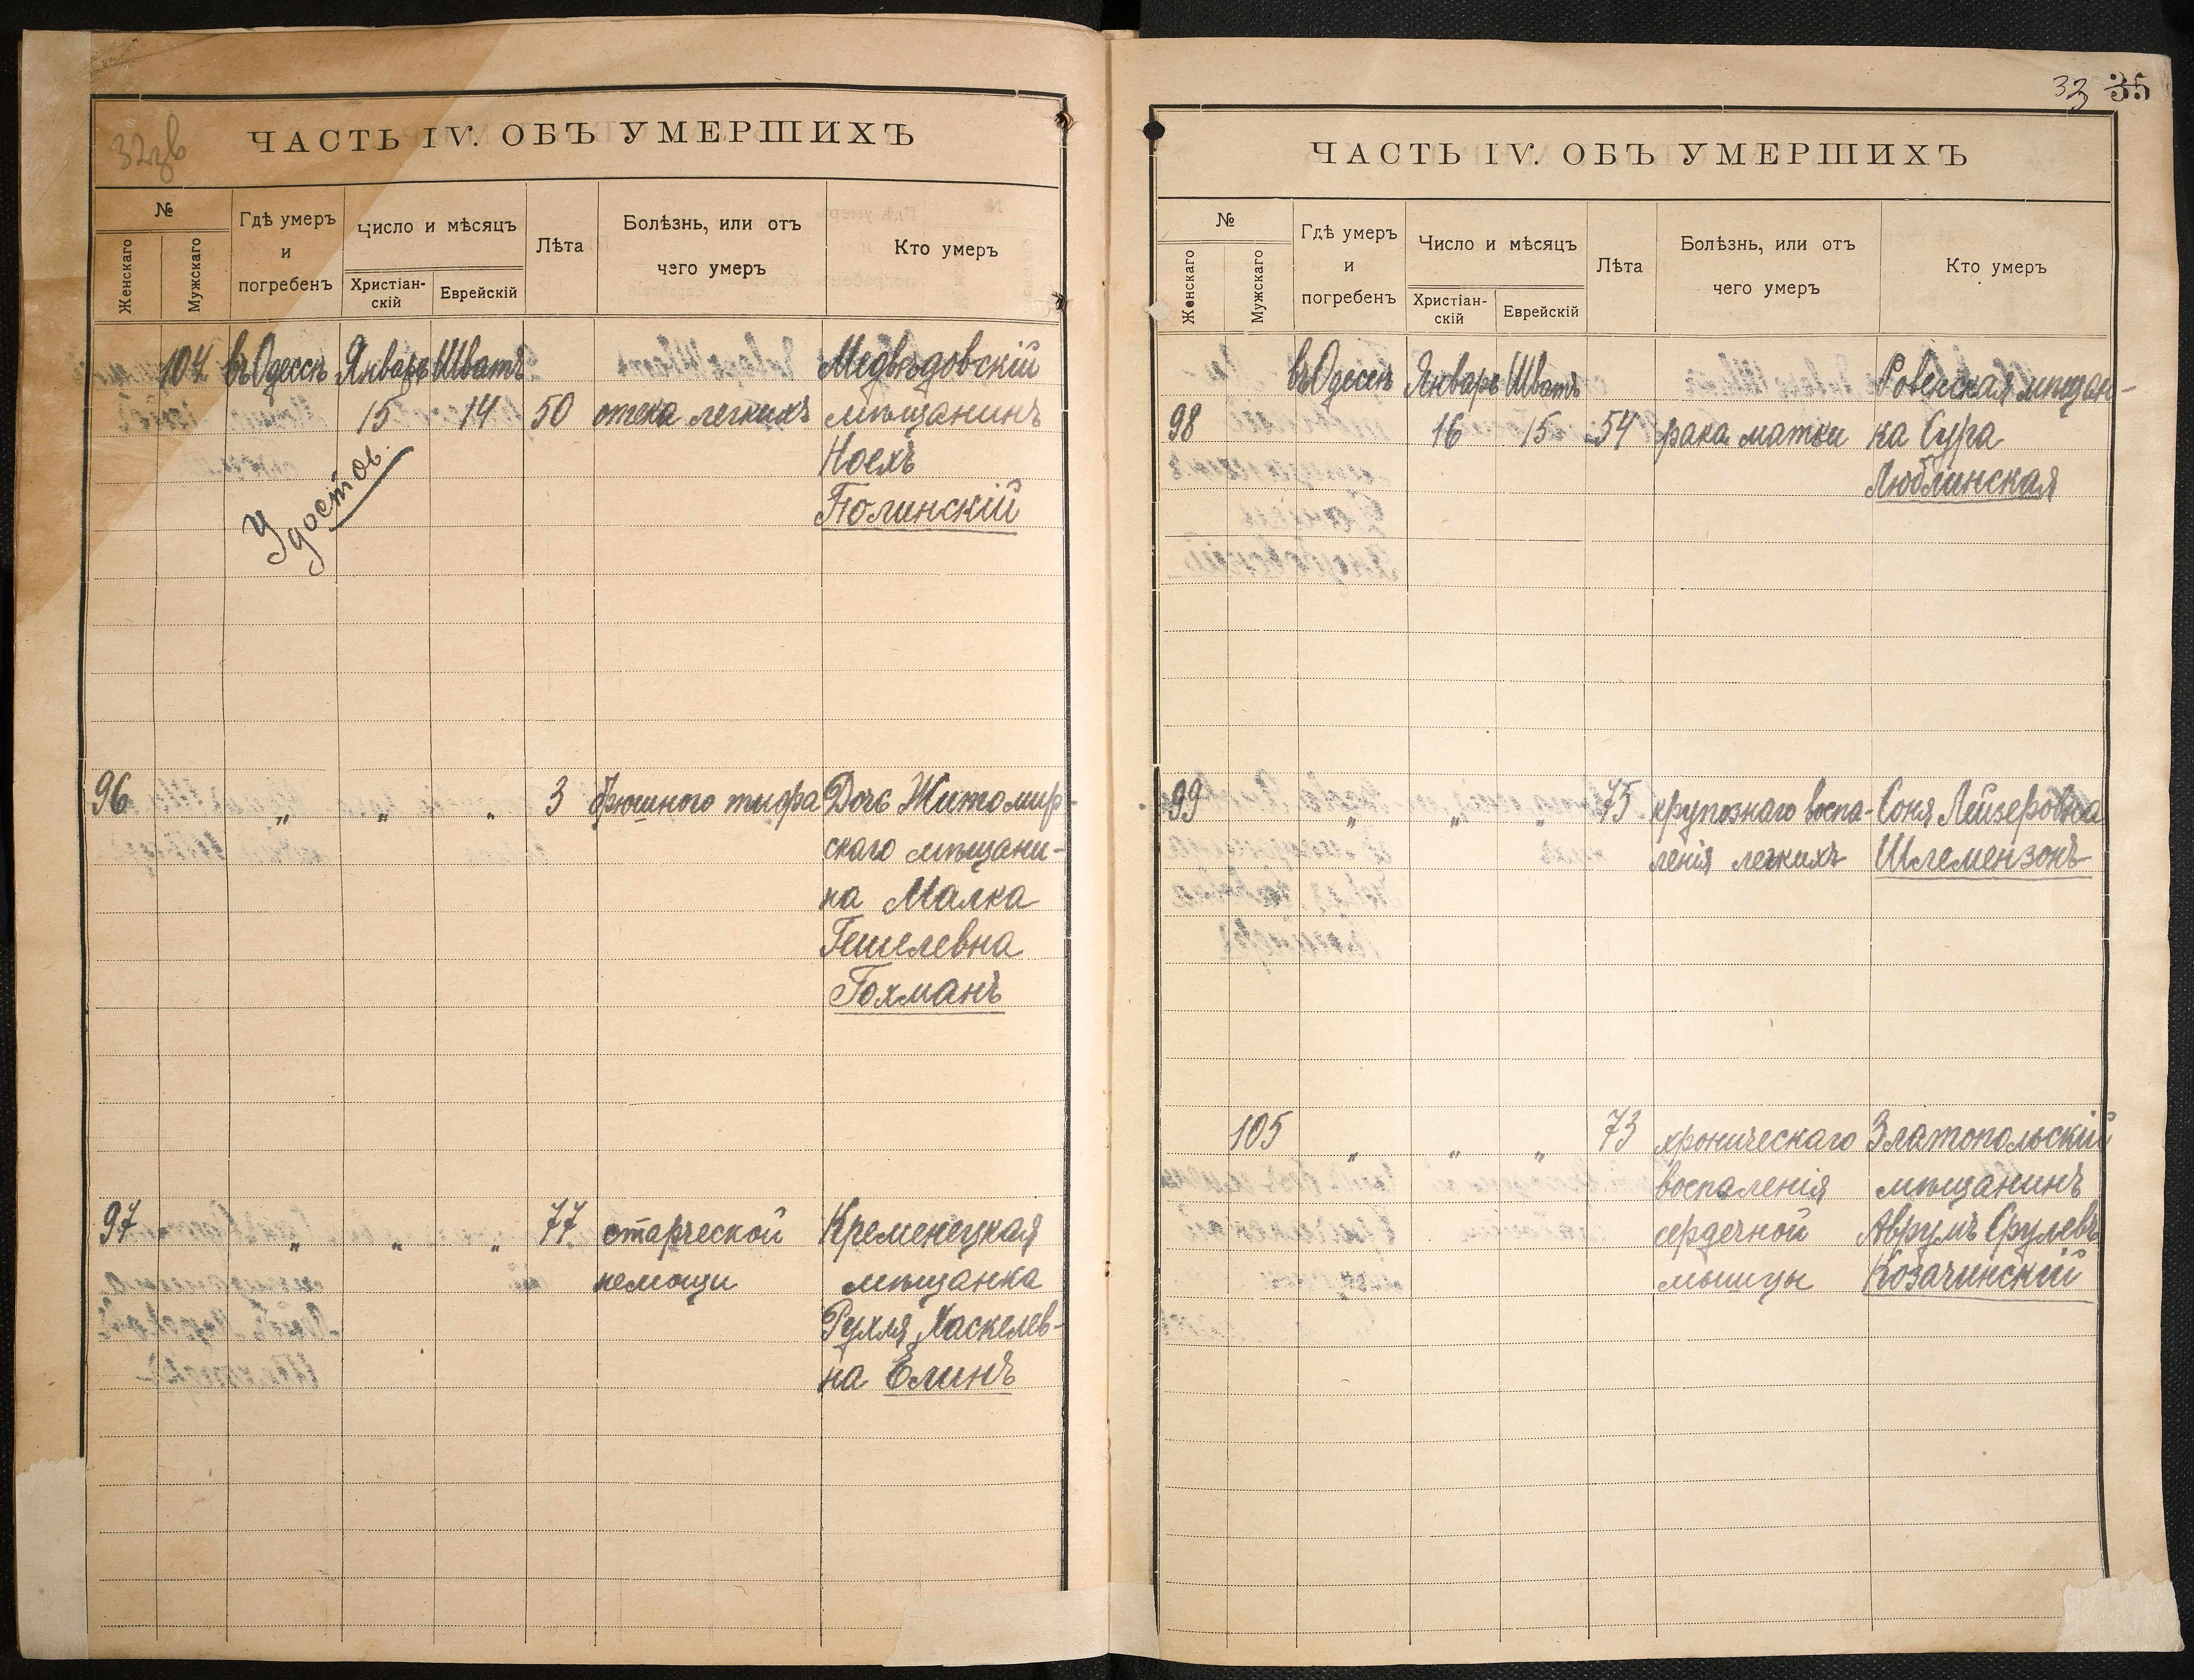 32зв
ЧАСТЬ IV. ОБЪ УМЕРШИХЪ
№
Женскаго
Мужскаго
Гдѣ умеръ
и
погребенъ
Число и мѣсяцъ
Христіан-
скій
Еврейскій
Лѣта
Болѣзнь, или отъ
чего умеръ
Кто умеръ
104 въ Одессѣ Январь Шватъ Медвѣдовскій
15 14 50 отека легкихъ мѣщанинъ
Ноехъ
Полинскій
Удостов.
96 „ „ „ 3 брюшного тифа Дочь Житомир-
скаго мѣщани-
на Малка
Гешелевна
Гохманъ
97 „ „ „ 77 старческой Кременецкая
немощи мѣщанка
Рухля Хаскелев-
на Елинъ
33 35
ЧАСТЬ IV. ОБЪ УМЕРШИХЪ
№
Женскаго
Мужскаго
Гдѣ умеръ
и
погребенъ
Число и мѣсяцъ
Христіан-
скій
Еврейскій
Лѣта
Болѣзнь, или отъ
чего умеръ
Кто умеръ
въ Одессѣ Январь Шватъ Ровенская мѣщан-
98 16 15 54 рака матки ка Сура
Люблинская
99 „ „ „ 75 крупознаго воспа- Соня Лейзеровна
ленія легкихъ Шлемензонъ
105 „ „ „ 73 хроническаго Златопольскій
воспаленія мѣщанинъ
сердечной Аврумъ Срулевъ
мышцы Козачинскій